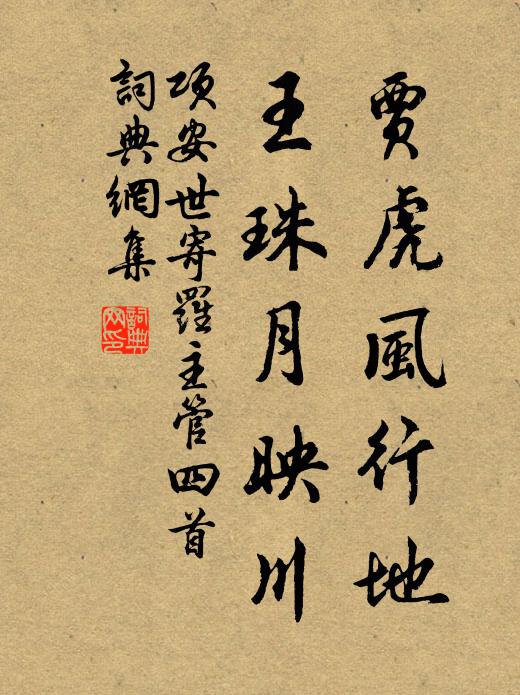 賈虎風行地
王珠月映川
項安世寄羅主管四首
詞典網集
詞典网印